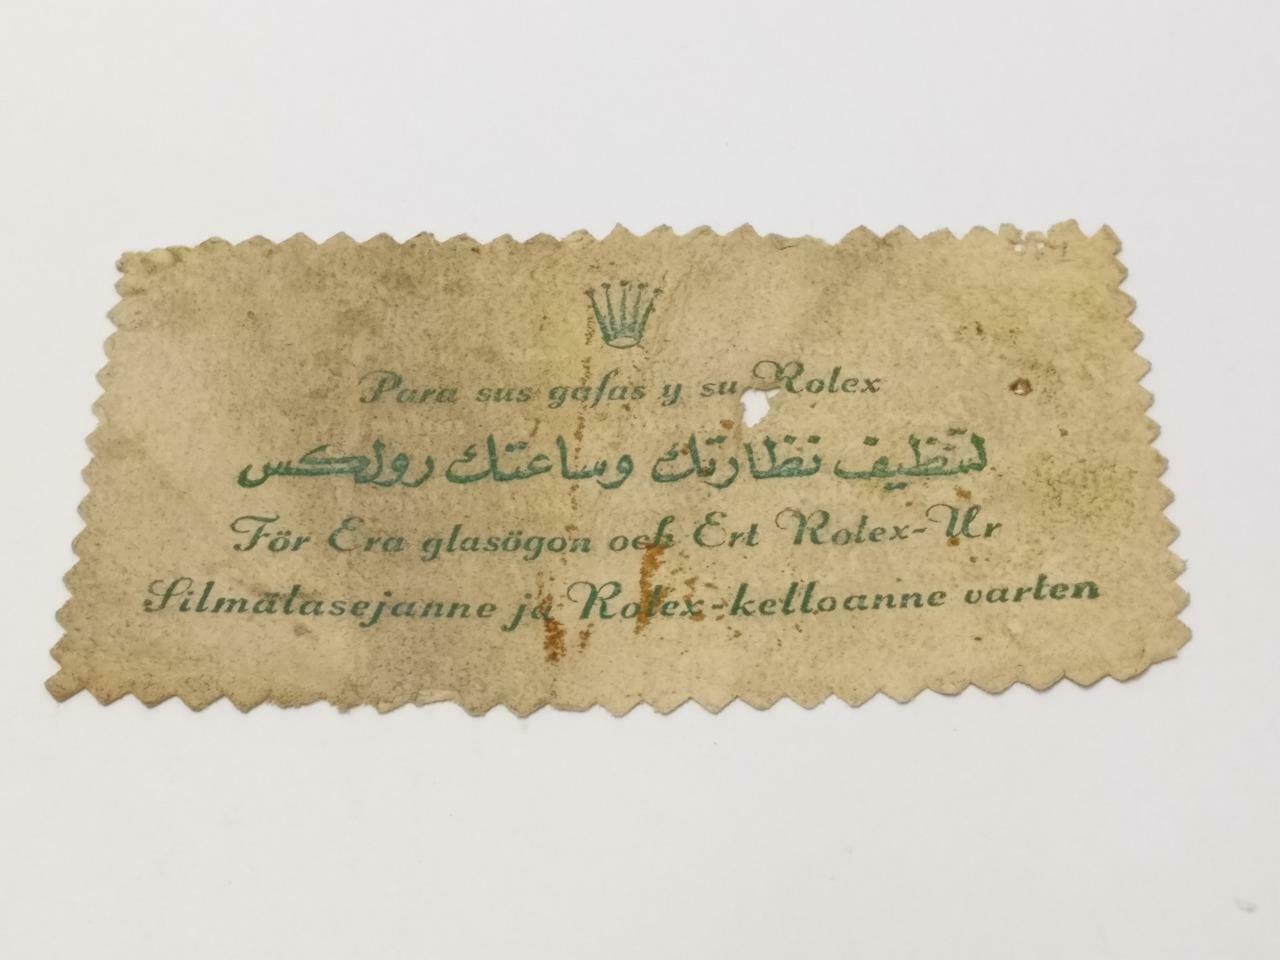 Para sus gafas y su Rolex
لتنظيف نظارتك وساعتك رولكس
För Era glasögon och Ert Rolex-Ur
Silmälasejanne ja Rolex-kelloanne varten